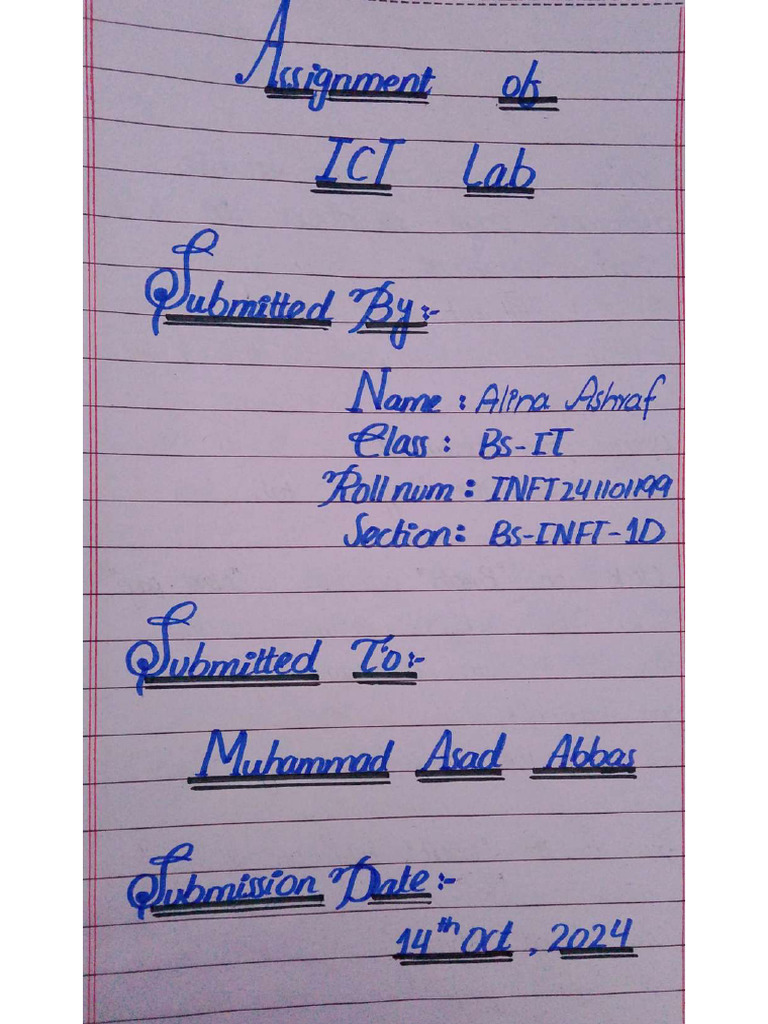 Assignment of
ICT Lab
Submitted By:-
Name : Alina Ashraf
Class : Bs-IT
Roll num : INFT241101199
Section: Bs-INFT-1D
Submitted To:-
Muhammad Asad Abbas
Submission Date:-
14th Oct, 2024